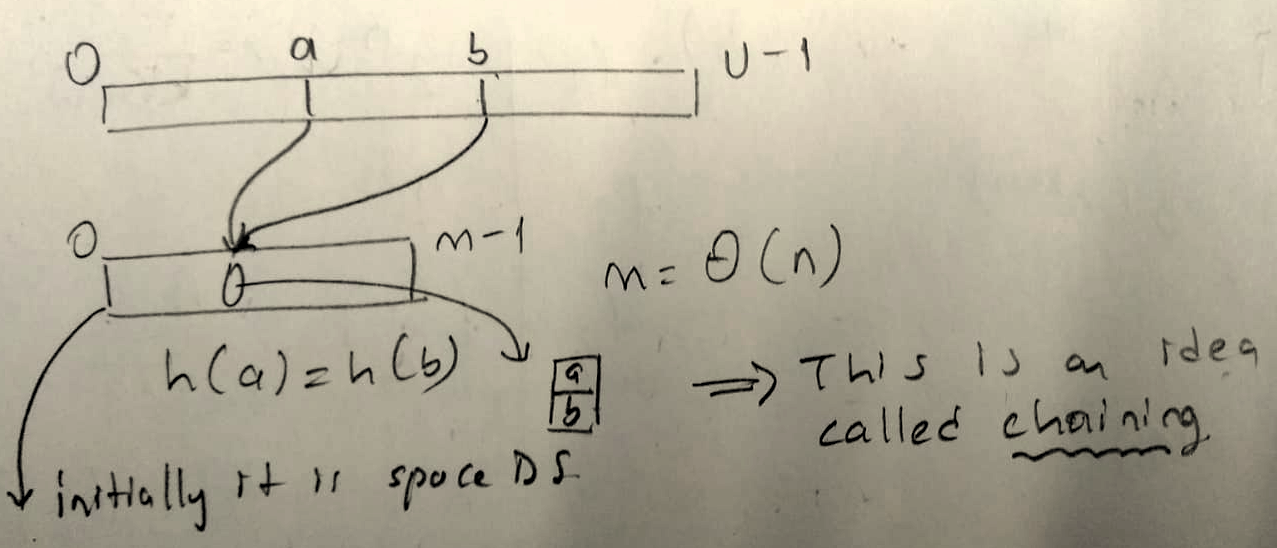 0 a b U-1
0 m-1
m = Θ(n)
h(a) = h(b)
a
b
⇒ This is an idea
called chaining
initially it is space DS